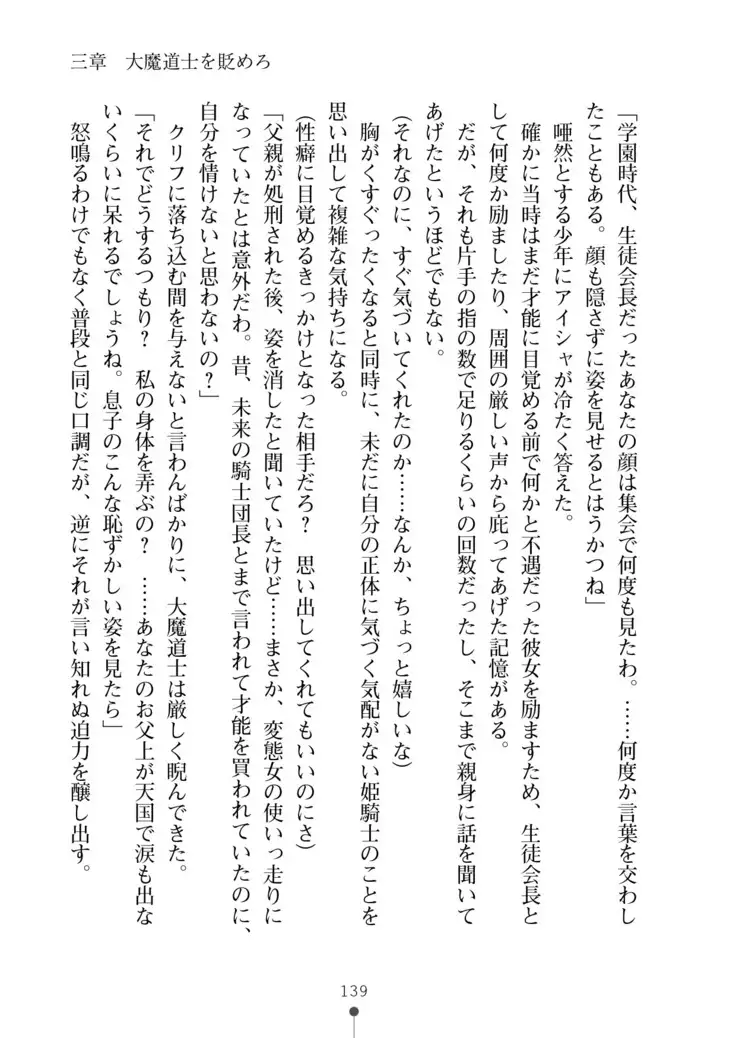 三章　大魔道士を貶めろ
「学園時代、生徒会長だったあなたの顔は集会で何度も見たわ。……何度か言葉を交わし
たこともある。顔も隠さずに姿を見せるとはうかつね」
　唖然とする少年にアイシャが冷たく答えた。
　確かに当時はまだ才能に目覚める前で何かと不遇だった彼女を励ますため、生徒会長と
して何度か励ましたり、周囲の厳しい声から庇ってあげた記憶がある。
　だが、それも片手の指の数で足りるくらいの回数だったし、そこまで親身に話を聞いて
あげたというほどでもない。
（それなのに、すぐ気づいてくれたのか……なんか、ちょっと嬉しいな）
　胸がくすぐったくなると同時に、未だに自分の正体に気づく気配がない姫騎士のことを
思い出して複雑な気持ちになる。
（性癖に目覚めるきっかけとなった相手だろ？　思い出してくれてもいいのにさ）
「父親が処刑された後、姿を消したと聞いていたけど……まさか、変態女の使いっ走りに
なっていたとは意外だわ。昔、未来の騎士団長とまで言われて才能を買われていたのに、
自分を情けないと思わないの？」
　クリフに落ち込む間を与えないと言わんばかりに、大魔道士は厳しく睨んできた。
「それでどうするつもり？　私の身体を弄ぶの？　……あなたのお父上が天国で涙も出な
いくらいに呆れるでしょうね。息子のこんな恥ずかしい姿を見たら」
　怒鳴るわけでもなく普段と同じ口調だが、逆にそれが言い知れぬ迫力を醸し出す。
139